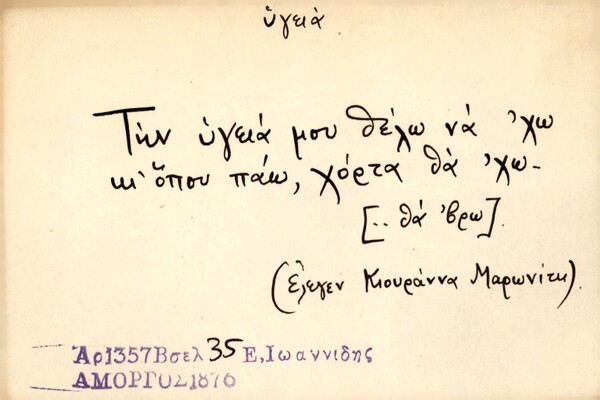 ὑγειὰ
Τὴν ὑγειά μου θέλω νὰ 'χω
κι' ὅπου πάω, χόρτα θὰ 'χω-
[.. θά 'βρω].
(ἔλεγεν Κιουράννα Μαρωνίτη).
Αρ1357Βσελ 35 Ε,Ιωαννιδης
ΑΜΟΡΓΟΣ1876